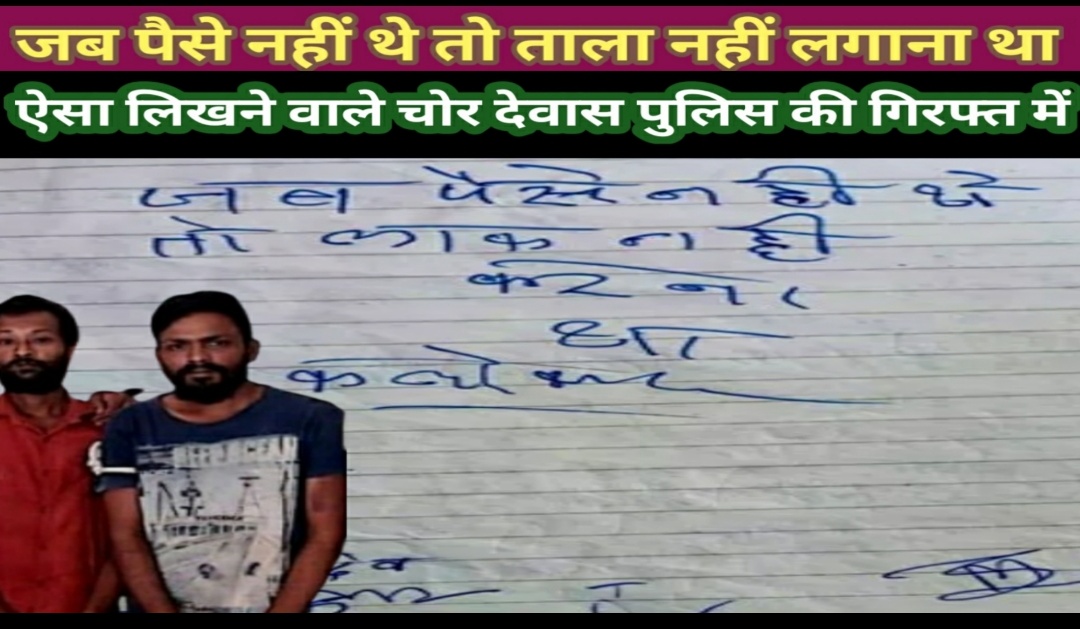 जब पैसे नहीं थे तो ताला नहीं लगाना था
ऐसा लिखने वाले चोर देवास पुलिस की गिरफ्त में
जब पैसे न ही थे
तो लाक न ही
करना
था
कलेक्टर